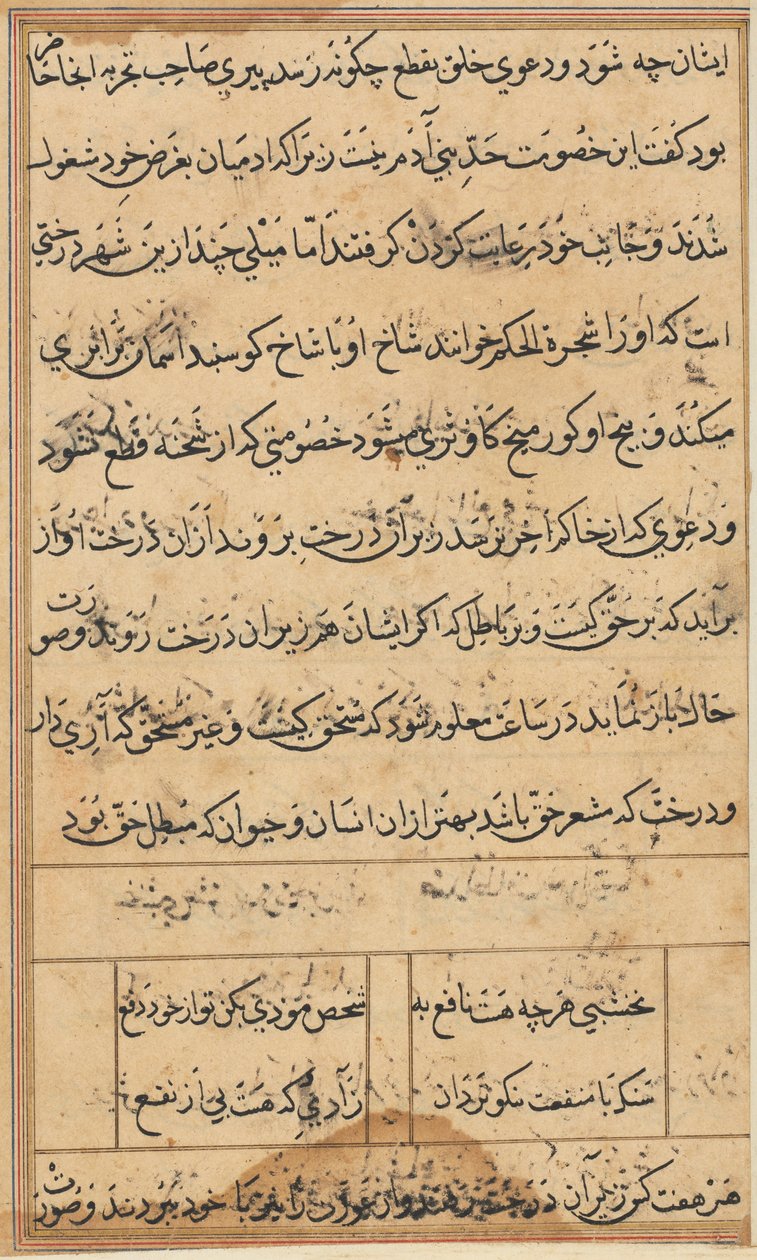 ایشان چه شَوَد ودعوي خلق بقطع چکونه رسد پیري صَاحِب تجربه انجا حاضر
بود کفت این خصومت حَدِّ بني آدم نیست زیرا که ادمیان بغرض خود مشغول
شدند وَجانب خود رعایت کردن کرفتند اما میلي چند ازین شهر درختي
است که او را شجرة الحکم خوانند شاخ او با شاخ کو سنبد اسمان برابري
میکند و بیخ او کور میخ کاو ثري میشود خصومتي که از شحنه قطع نشود
و دعوي که از حاکم اخر نرسد زیر آن درخت بروند ازان درخت اواز
برآید که بر حق کیست و بر باطل که اکر ایشان هم زیر ان درخت روند وصورت
حال باز نماید در ساعت معلوم شود که مستحق کیست و غیر مستحق که آري دار
ودرختي که مشعر حق باشد بهتر ازان انسان و حیوان که مبطل حق بود
نخشبي هر چه هست نافع به
شخص موذي بکن تو از خود دفع
سنک با منفعت نکوتر دان
زآدمي که هست بي از نفع
هر هفت کس زیر آن درخت رفتند وان عورت را نیز با خود ببردند وصورت